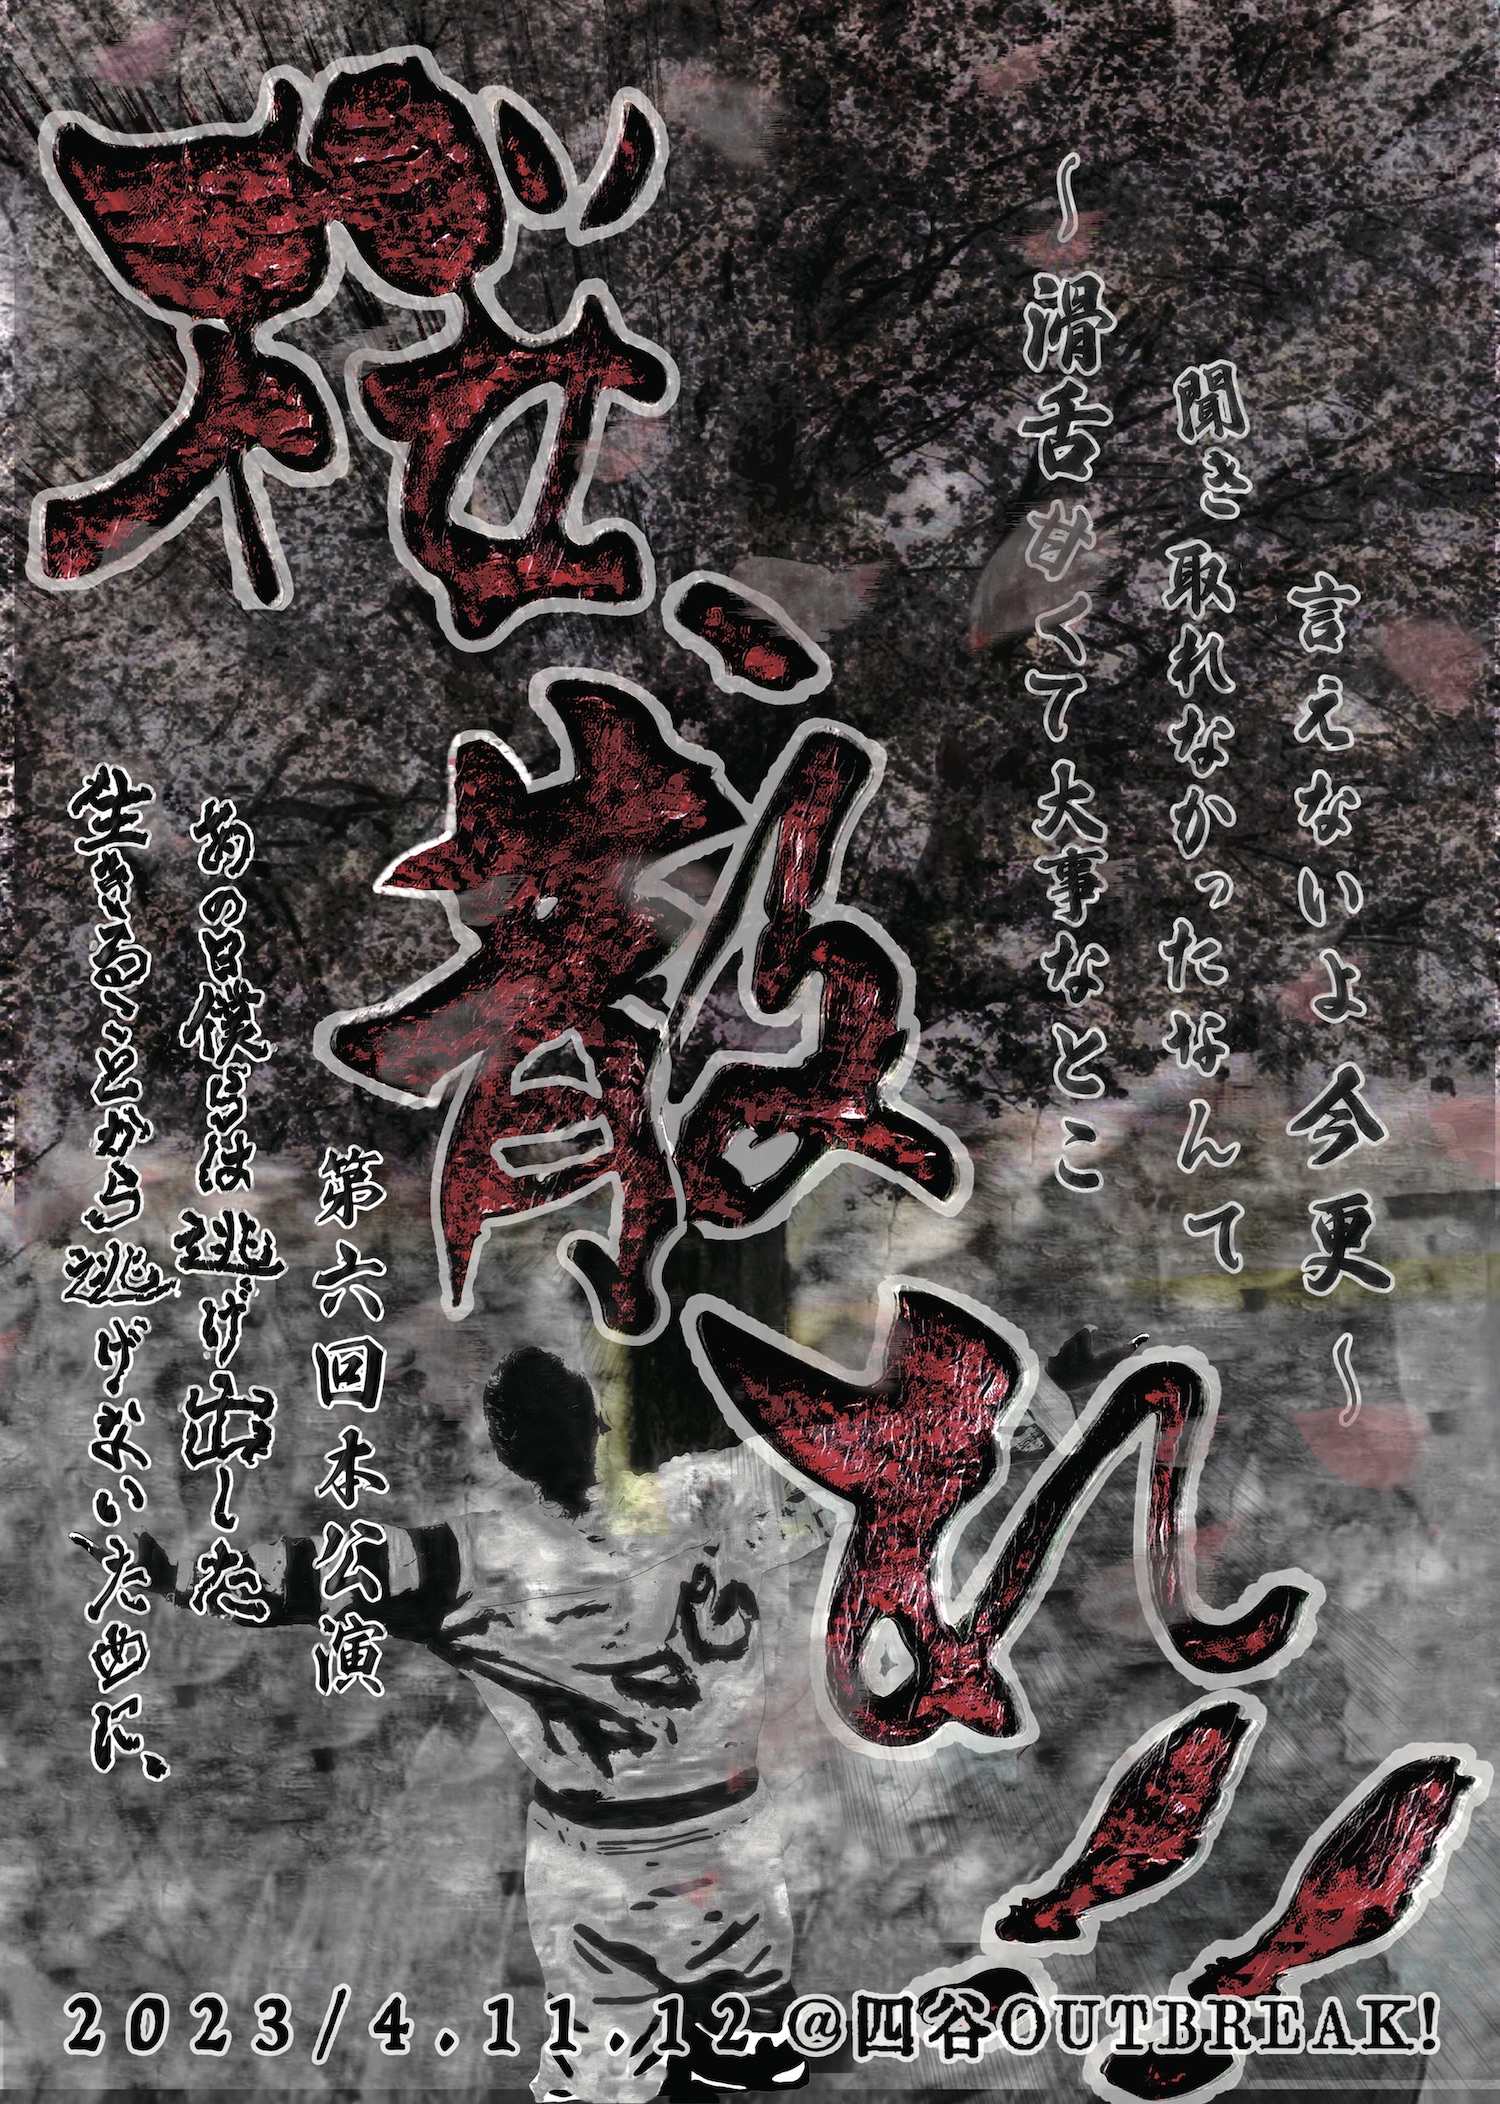 桜、散れ!!
~滑舌甘くて大事なとこ
聞き取れなかったなんて
言えないよ今更~
第六回本公演
あの日僕らは逃げ出した
生きることから逃げないために、
2023/4.11.12@四谷OUTBREAK!